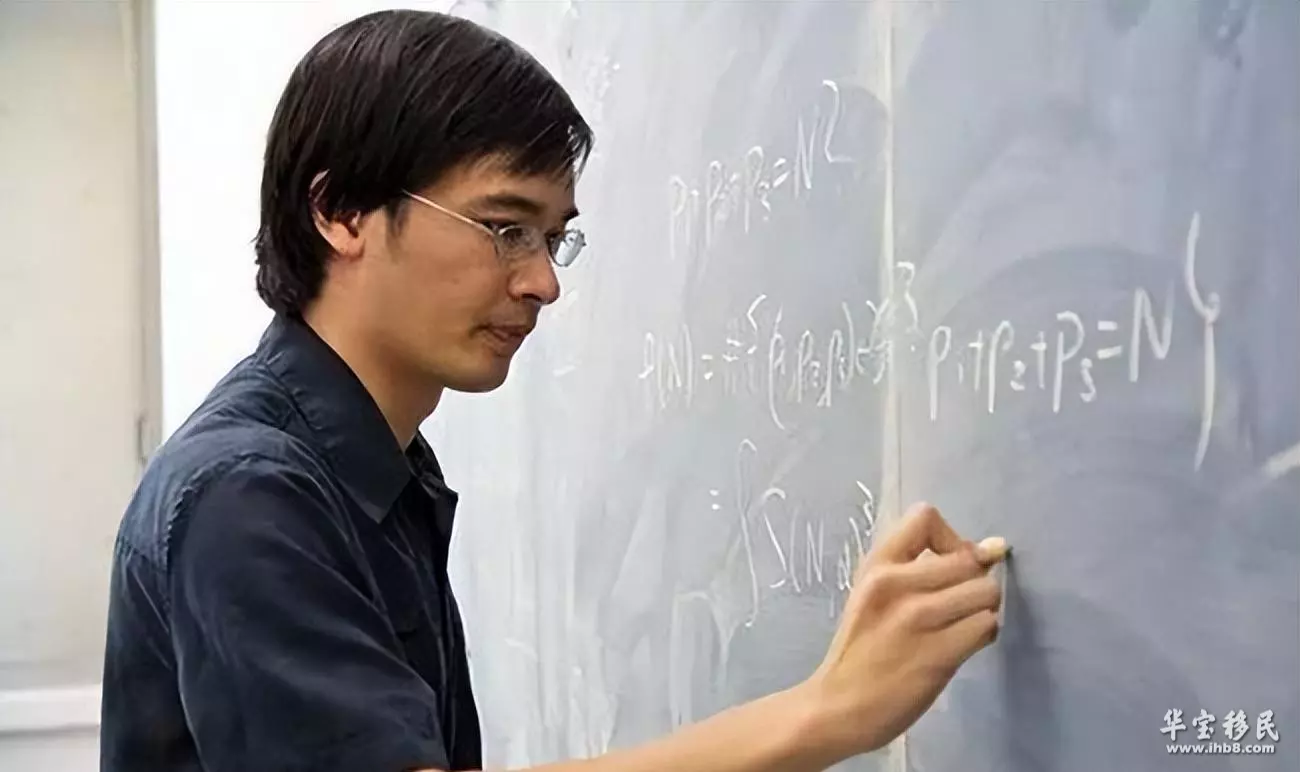 p₁+p₂+p₃=N
r(N) = #{(p₁,p₂,p₃) : p₁+p₂+p₃=N}
= ∫ S(N,α)³
华宝移民
www.ihb8.com